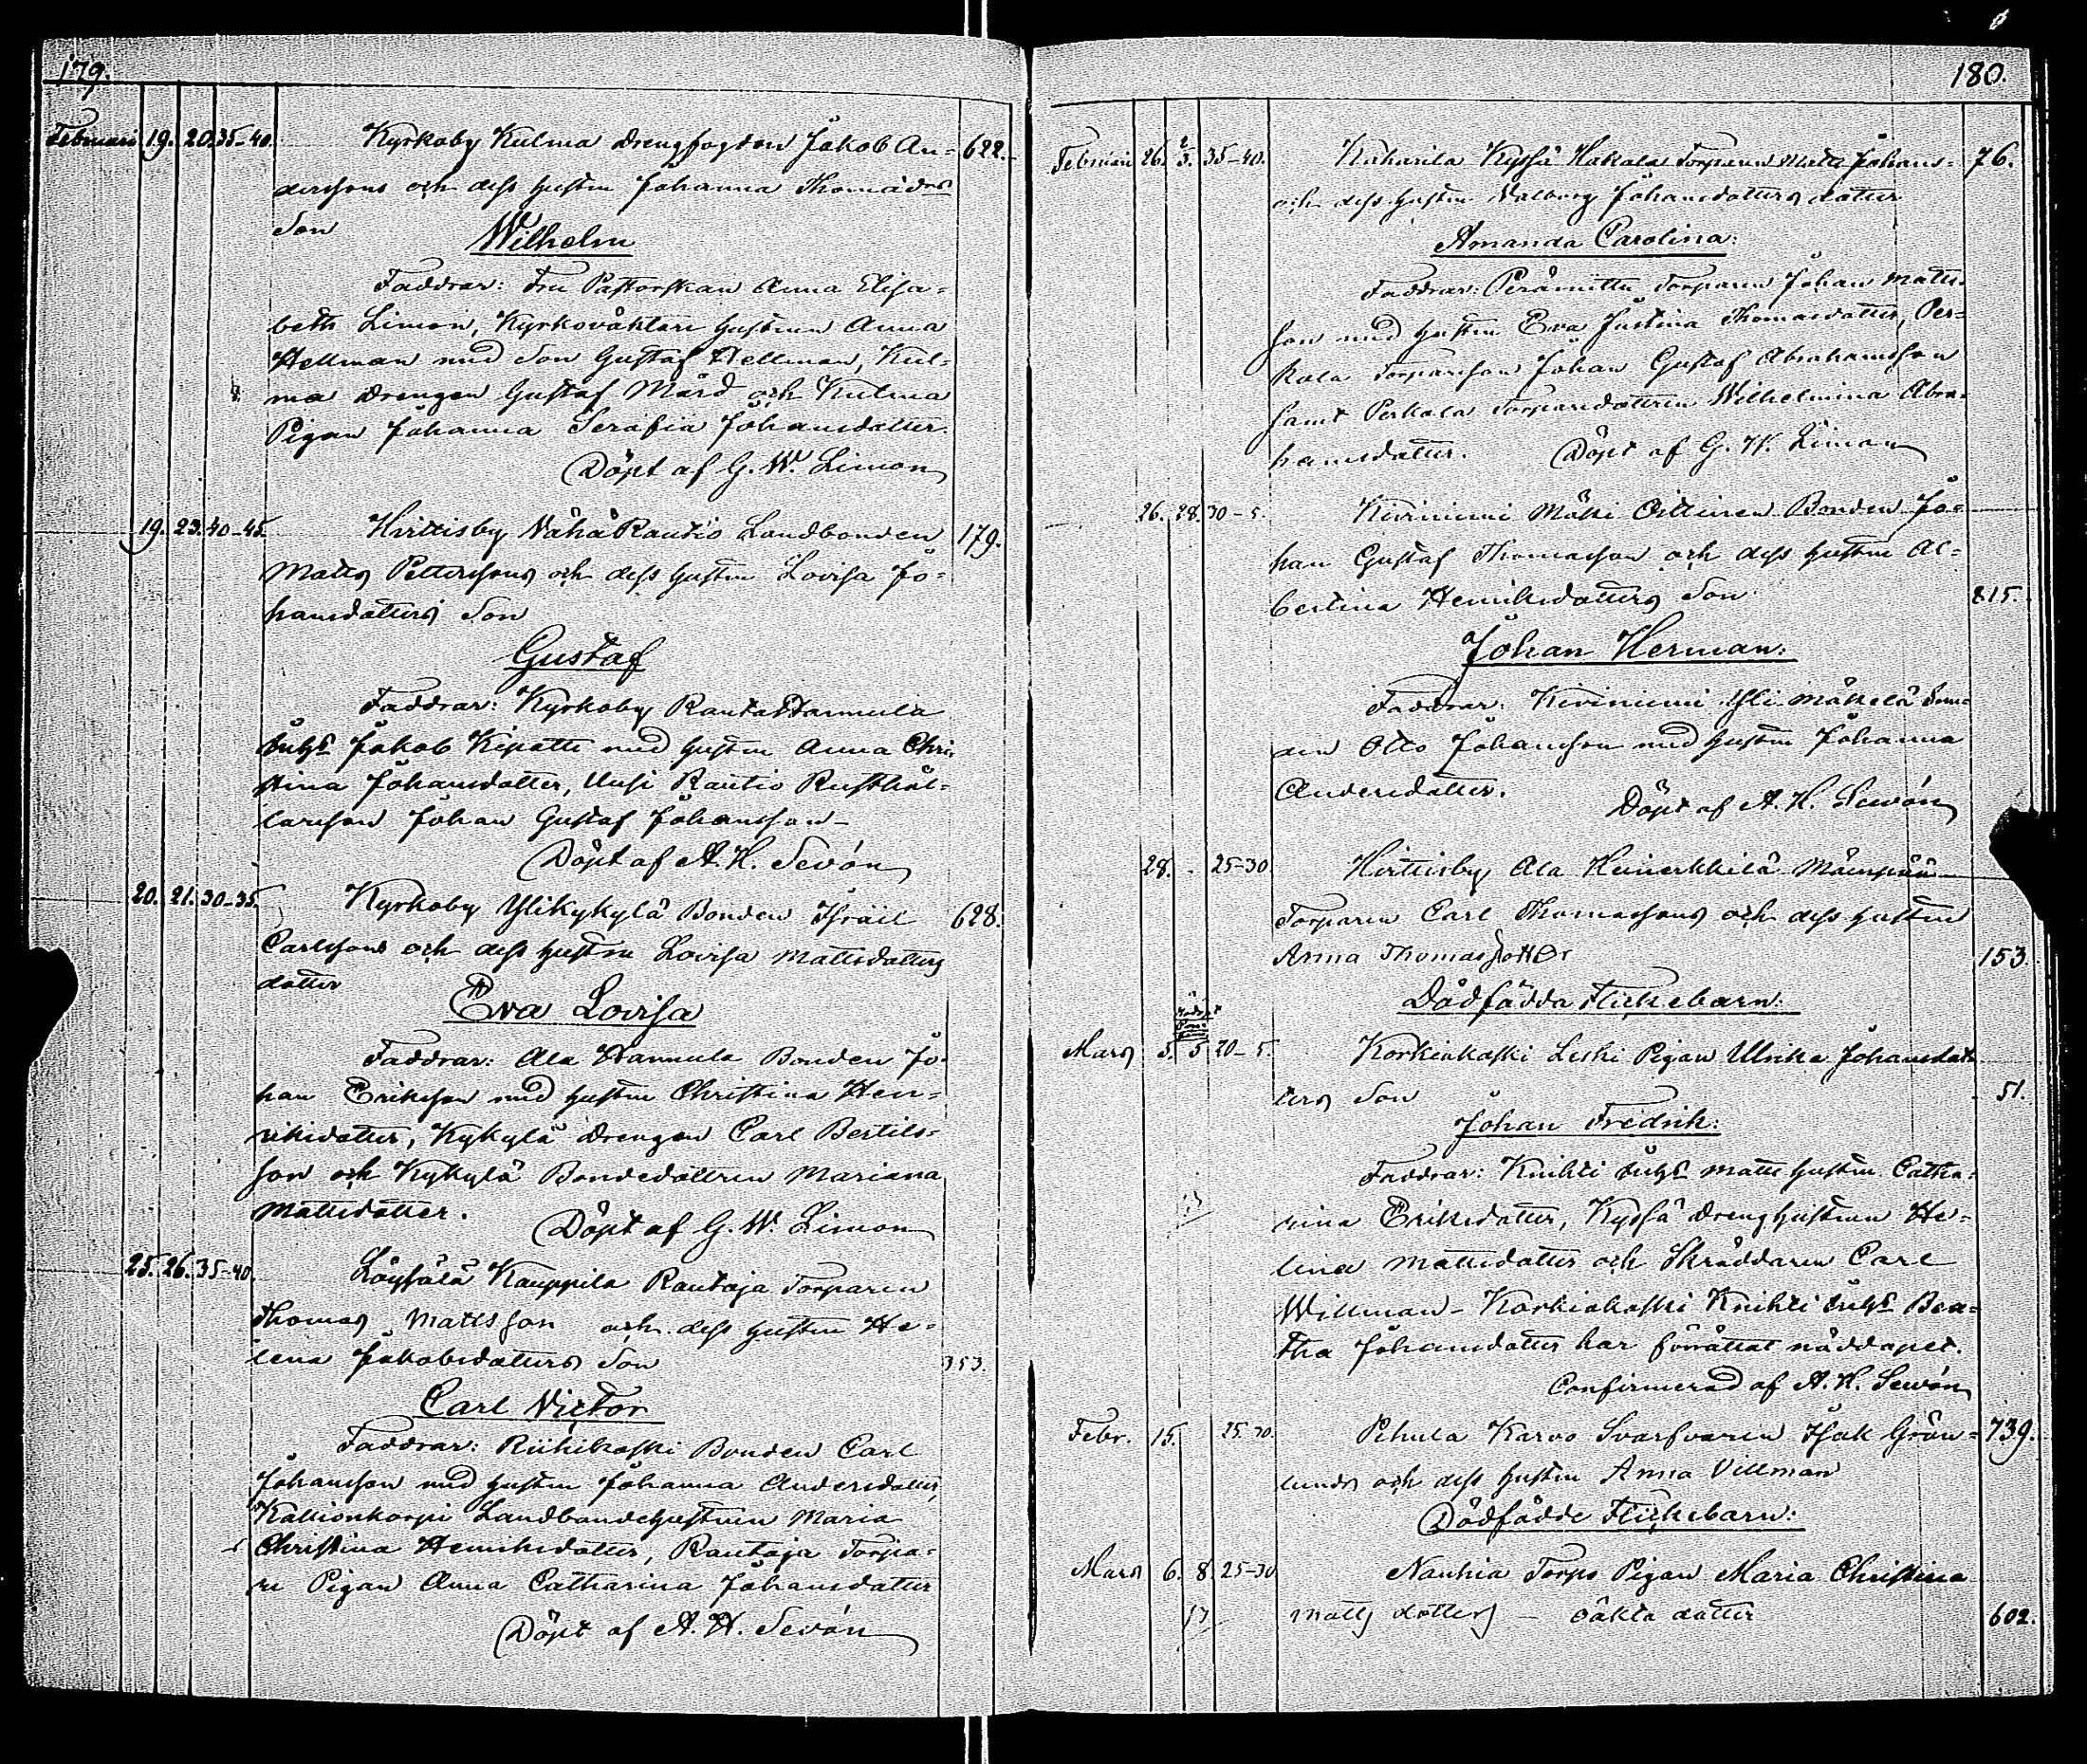 179.
Februari 19. 20. 35-40. Kyrkoby Kulma drengfogden Jakob An- 622.
derssons och dess hustru Johanna Thomædrs
Son
Wilhelm
Faddrar: Fru Pastorskan Anna Elisa-
beth Limon, Kyrkovåktare hustrun Anna
Hellman med Son Gustaf Hellman, Kul-
ma drengen Gustaf Mård och Kulma
Pigan Johanna Serafia Johansdotter.
Döpt af G. W. Limon
19. 23. 40-45. Hirttisby Vähä Rautio Landbonden 179.
Matts Petterssons och dess hustru Lovisa Jo-
hansdotters Son
Gustaf
Faddrar: Kyrkoby Rauta Hannula
Inhs Jakob Kipatti med hustru Anna Chri-
stina Johansdotter, Uusi Rautio Rusthål-
larsson Johan Gustaf Johansson-
Döpt af A. H. Sevón
20. 21. 30-35. Kyrkoby Ylikykylä Bonden Israil 628.
Carlssons och dess hustru Lovisa Mattsdotters
dotter
Eva Lovisa
Faddrar: Ala Hannula Bonden Jo-
han Eriksson med hustru Christina Hen-
riksdotter, Kykylä drengen Carl Bertils-
son och Kykylä Bondedottren Mariana
Mattsdotter.
Döpt af G. W. Limon
25. 26. 35-40. Löysälä Kauppila Rautaja Torparen
Thomas Mattsson och dess hustru He-
lena Jakobsdotters Son 353.
Carl Victor
Faddrar: Riihikoski Bonden Carl
Johansson med hustru Johanna Andersdotter,
Kallionkorpi Landbondehustrun Maria
Christina Henriksdotter, Rautaja Torpa-
re Pigan Anna Catharina Johansdotter
Döpt af A. H. Sevón
180.
Februari 26. 2/3. 35-40. Kuharila Kyssä Hakala Torparen Matts Johans- 76.
och dess hustru Valborg Johansdotters dotter
Amanda Carolina:
Faddrar: Torparen Johan Matts-
son med hustru Eva Justina Thomasdotter, Per-
kola Torparson Johan Gustaf Abrahamsson
samt Perkola Torparedottren Wilhelmina Abra-
hamsdotter. Döpt af G. W. Limon
26. 28. 30-5. Kiviniemi Mäki Oittinen Bonden Jo-
han Gustaf Thomasson och dess hustru Al-
bertina Henriksdotters Son 815.
Johan Herman:
Faddrar: Kiviniemi Yli Mäkelä Bon-
den Otto Johansson med hustru Johanna
Andersdotter.
Döpt af A. H. Sewón
28. - 25-30 Hirttisby Ala Heinerkkilä Mäenpää
Torparen Carl Thomassons och dess hustru
Anna Thomasdotter 153.
Dödfödda Flickebarn:
Mars 5. 5 20-5. Korkiakoski Leski Pigan Ulrika Johansdot-
ters Son 51.
Johan Fredrik:
Faddrar: Knihti Inhs Matts hustru Catha-
rina Eriksdotter, Kyssä drenghustrun He-
lena Mattsdotter och Skräddaren Carl
Willman- Korkiakoski Knihti Inhs Bea-
tha Johansdotter har förrättat nöddopet.
Confirmerad af A. H. Sewón
Febr. 15. 25-30. Pehula Karvo Svarfvaren Isak Grön- 739.
lunds och dess hustru Anna Villman
Dödfödde Flickebarn:
Mars 6. 8. 25-30 Nauhia Torps Pigan Maria Christina
Matts dotters - oäkta dotter 602.